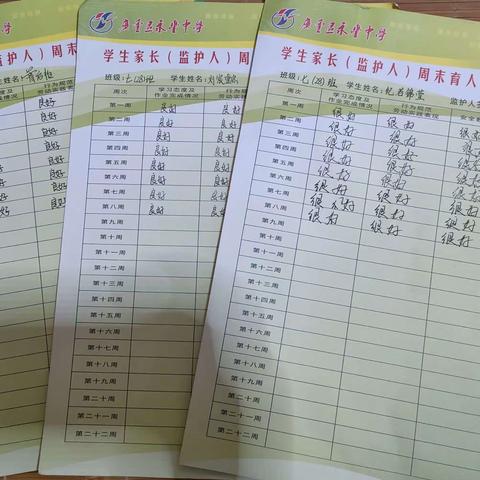 人）周末
学生姓名:
行为规范
劳动实践表现
良好
良好
良好
良好
良好
良好
良好
学生家长（监护人）周末育人
班级:七(28)班 学生姓名:
周次 学习态度及作业完成情况 行为规范劳动实践表现
第一周 良好 良好
第二周 良好 良好
第三周 良好 良好
第四周 良好 良好
第五周 良好 良好
第六周 良好 良好
第七周 良好 良好
第八周 良好 良好
第九周 良好 良好
第十周
第十一周
第十二周
第十三周
第十四周
第十五周
第十六周
第十七周
第十八周
第十九周
第二十周
第二十一周
第二十二周
学生家长（监护人）周末育人
班级:七(28)班 学生姓名: 监护人
周次 学习态度及作业完成情况 行为规范劳动实践表现 安全
第一周 很好 很好 很好
第二周 很好 很好 很好
第三周 很好 很好 很好
第四周 很好 很好 很好
第五周 很好 很好 很好
第六周 很好 很好 很好
第七周 很好 很好 很好
第八周 很好 很好 很好
第九周 很好 很好 很好
第十周
第十一周
第十二周
第十三周
第十四周
第十五周
第十六周
第十七周
第十八周
第十九周
第二十周
第二十一周
第二十二周